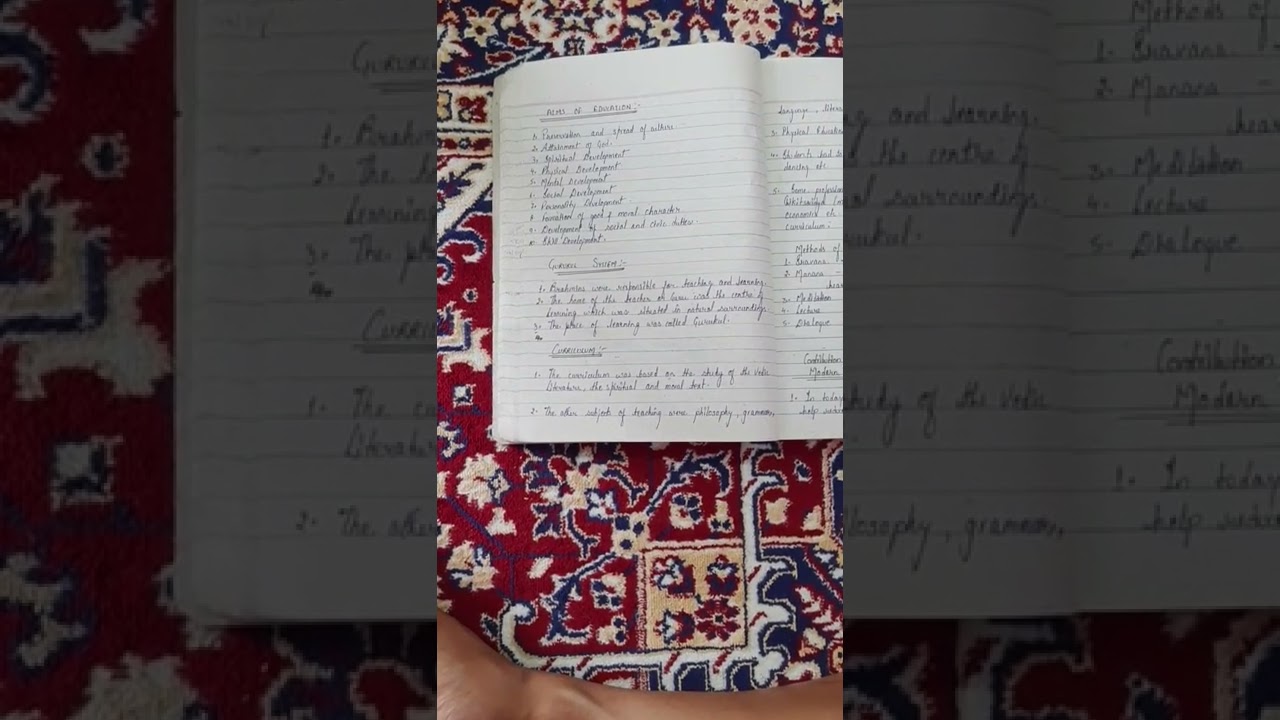 AIMS OF EDUCATION :-
1. Preservation and spread of culture.
2. Attainment of God.
3. Spiritual Development
4. Physical Development
5. Mental Development
6. Social Development
7. Personality Development.
8. Formation of good & moral character
9. Development of social and civic duties.
10. Skill Development.
GURUKUL SYSTEM :-
1. Brahmins were responsible for teaching and learning.
2. The home of the teacher or Guru was the centre of
learning which was situated in natural surroundings.
3. The place of learning was called Gurukul.
CURRICULUM :-
1. The curriculum was based on the study of the Vedic
literature, the spiritual and moral text.
2. The other subjects of teaching were philosophy, grammar,
language,
3. Physical
4. Students had
dancing etc
5. Some
economics etc.
curriculum.
Methods of
1. Sravana
2. Manana -
3. Meditation
4. Lecture
5. Dialogue
Contribution
Modern
1. In today
help